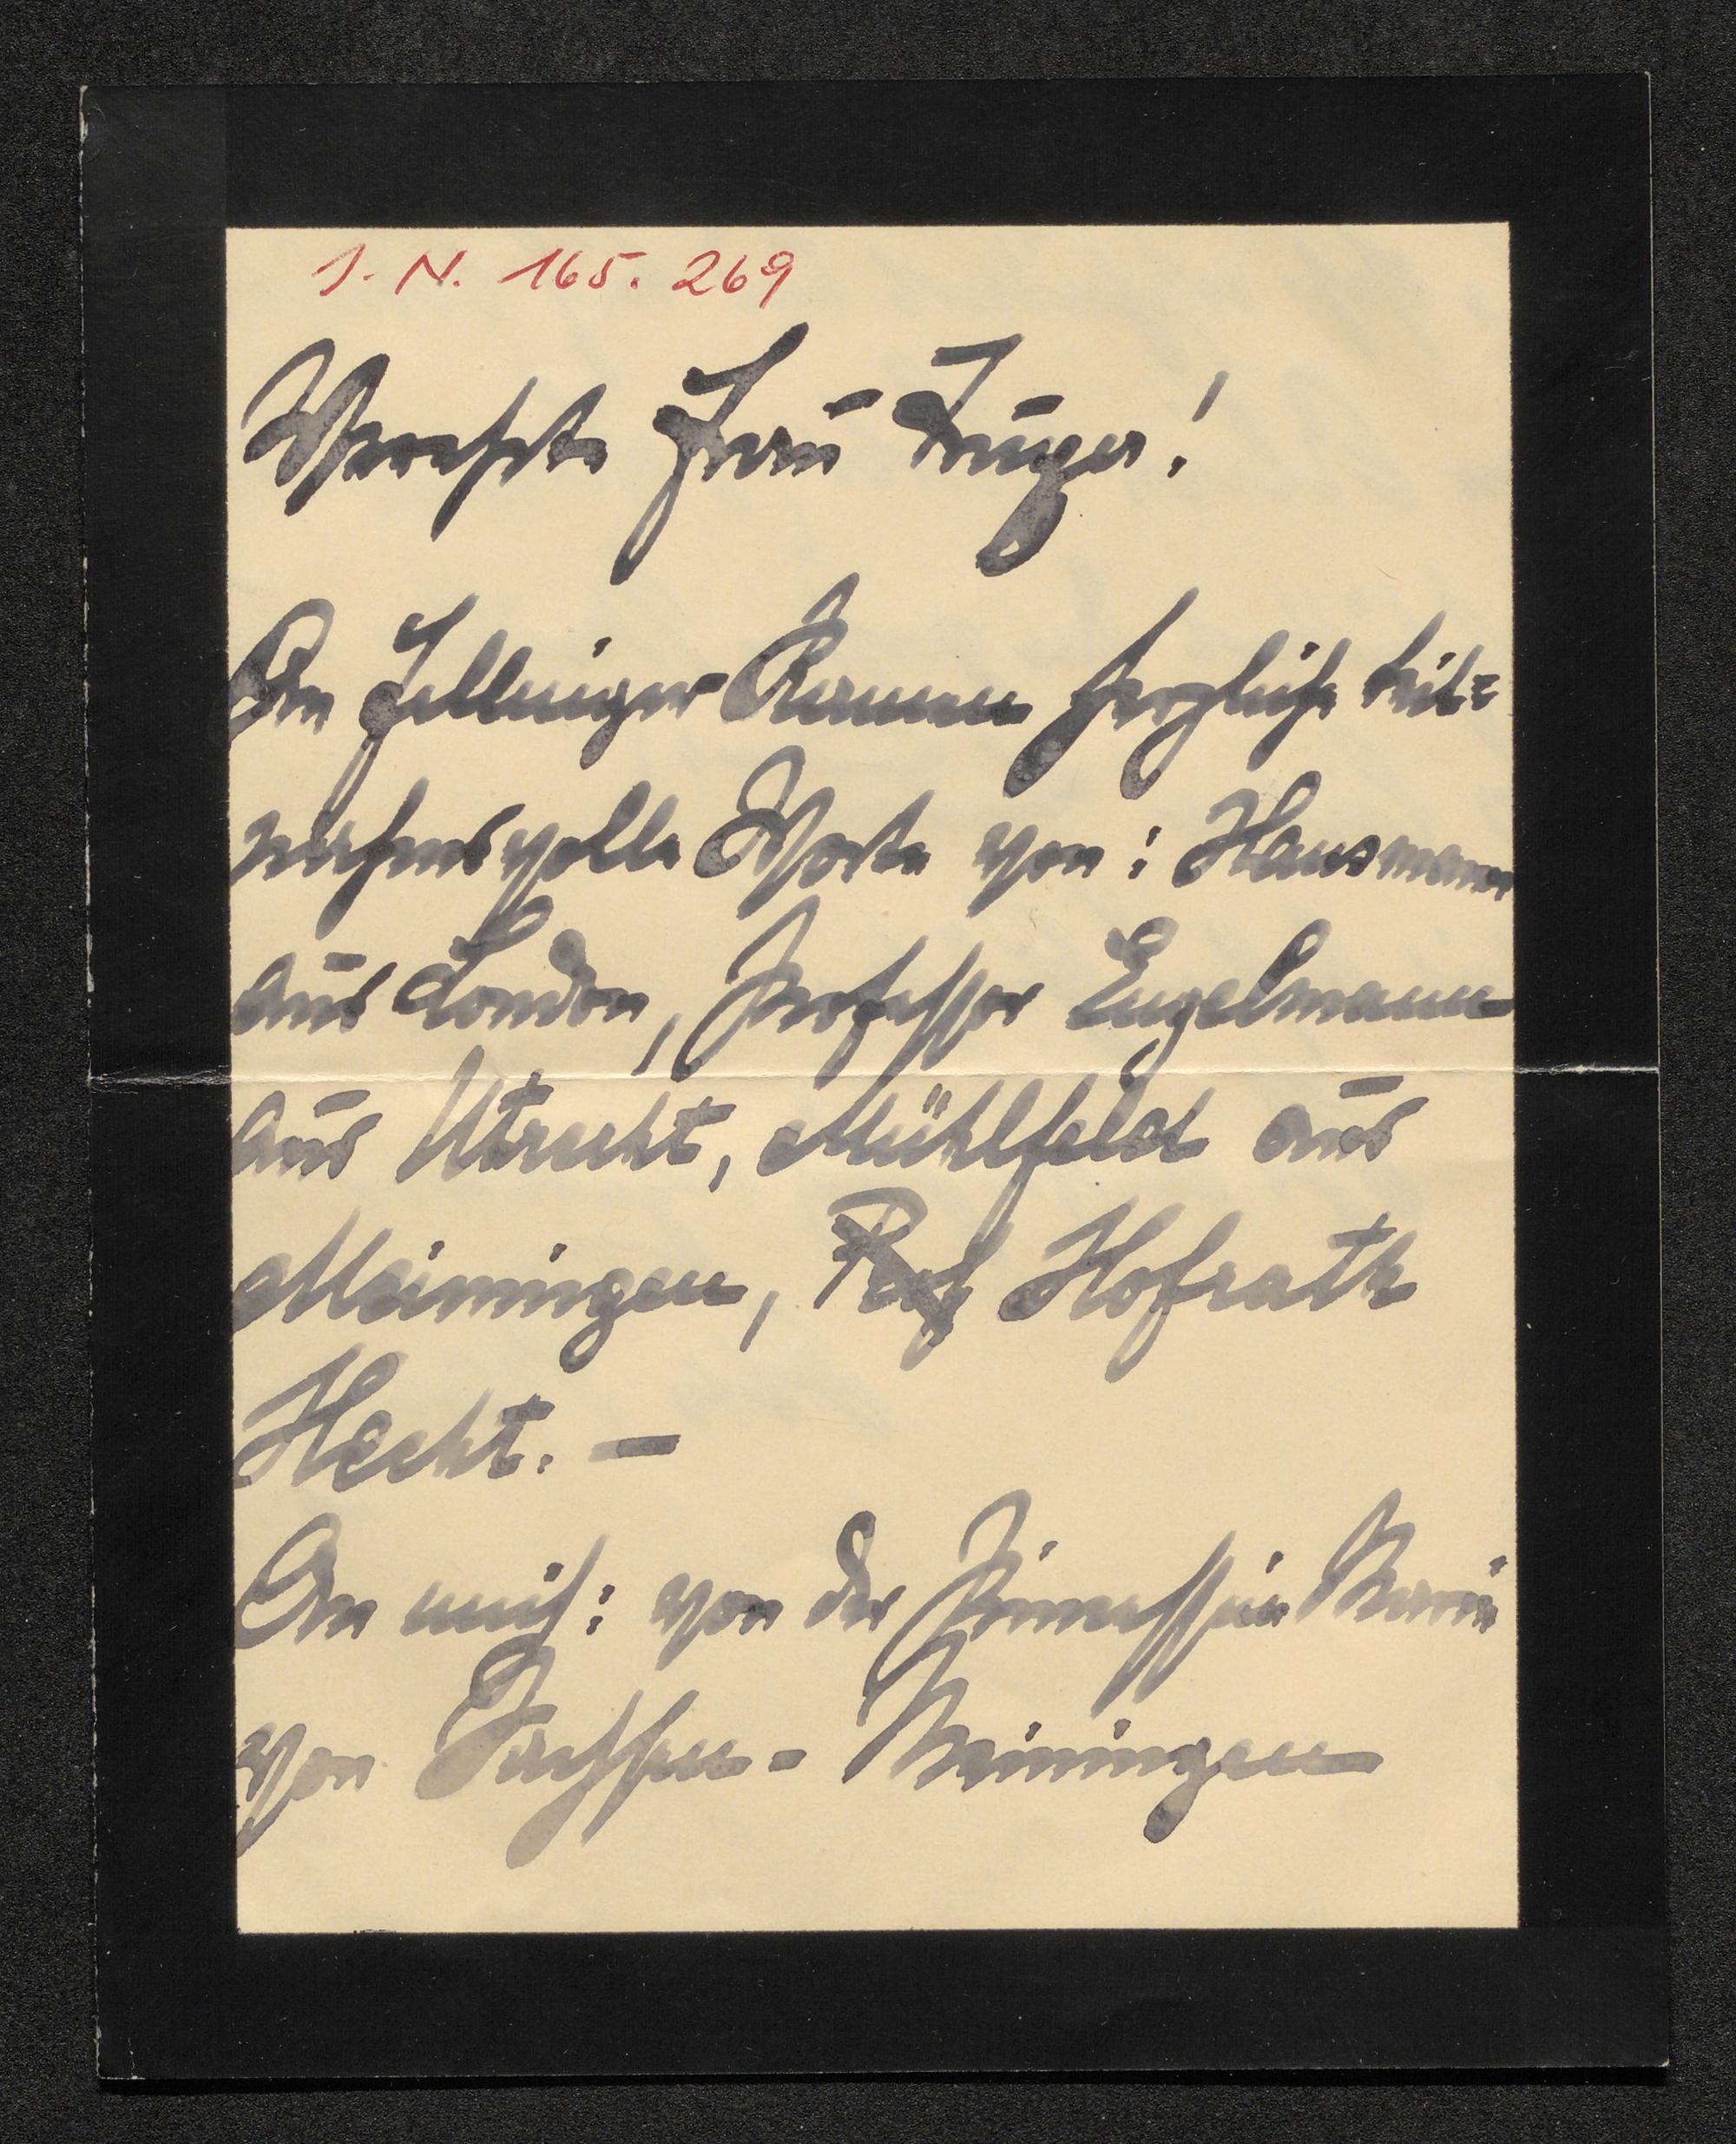 I. N. 165. 269
Verehrte Frau Truxa!
An Fellinger kamen herzliche teil=
nahmsvolle Worte von: Hausmann
aus London, Professor Engelmann
aus Utrecht, Mühlfeld aus
Meiningen, Hofrath
Hecht. –
An mich: von der Prinzessin Marie
von Sachsen-Meiningen